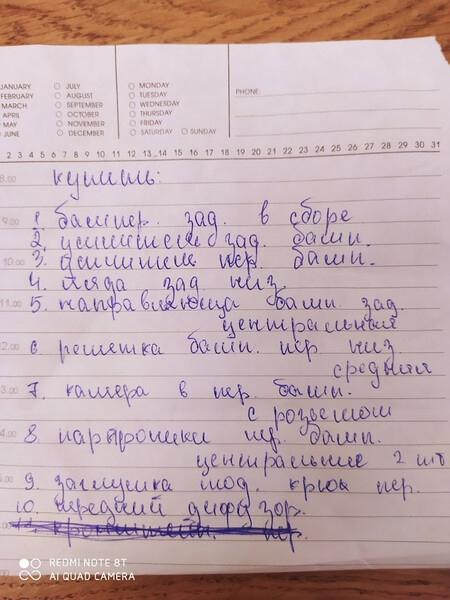 JANUARY
FEBRUARY
MARCH
APRIL
MAY
JUNE
JULY
AUGUST
SEPTEMBER
OCTOBER
NOVEMBER
DECEMBER
MONDAY
TUESDAY
WEDNESDAY
THURSDAY
FRIDAY
SATURDAY SUNDAY
PHONE:
2 3 4 5 6 7 8 9 10 11 12 13 14 15 16 17 18 19 20 21 22 23 24 25 26 27 28 29 30 31
8.00 купить:
9.00 1. бампер. зад. в сборе
2. усилитель зад. бамп.
10.00 3. усилитель пер. бамп.
4. ляда зад низ
11.00 5. направляюща бамп. зад.
центральный
12.00 6. решетка бамп. пер низ
средняя
3.00 7. камера в пер. бамп.
с розъемом
4.00 8. парктроники пер. бамп.
центральние 2 шт
9. заглушка под. крюк пер.
10. передний диффузор.
11. кронштейн пер.
REDMI NOTE 8T
AI QUAD CAMERA